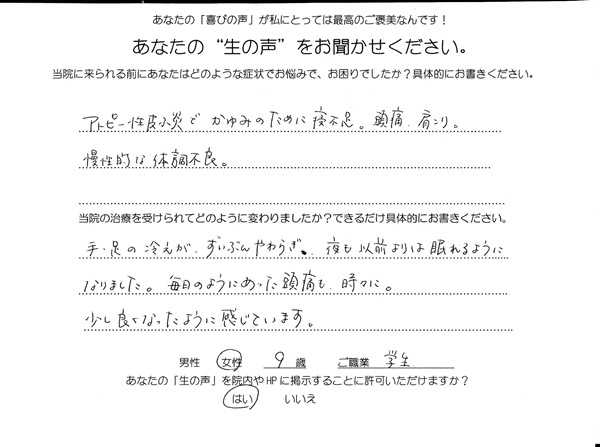 あなたの「喜びの声」が私にとっては最高のご褒美なんです！
あなたの“生の声”をお聞かせください。
当院に来られる前にあなたはどのような症状でお悩みで、お困りでしたか？具体的にお書きください。
アトピー性皮フ炎で かゆみのために寝不足。頭痛、肩こり。
慢性的な体調不良。
当院の治療を受けられてどのように変わりましたか？できるだけ具体的にお書きください。
手・足の冷えが、ずいぶんやわらぎ、夜も以前よりは眠れるように
なりました。毎日のようにあった頭痛も、時々に。
少し良くなったように感じています。
男性 女性 9 歳 ご職業 学生
あなたの「生の声」を院内やHPに掲示することに許可いただけますか？
はい いいえ